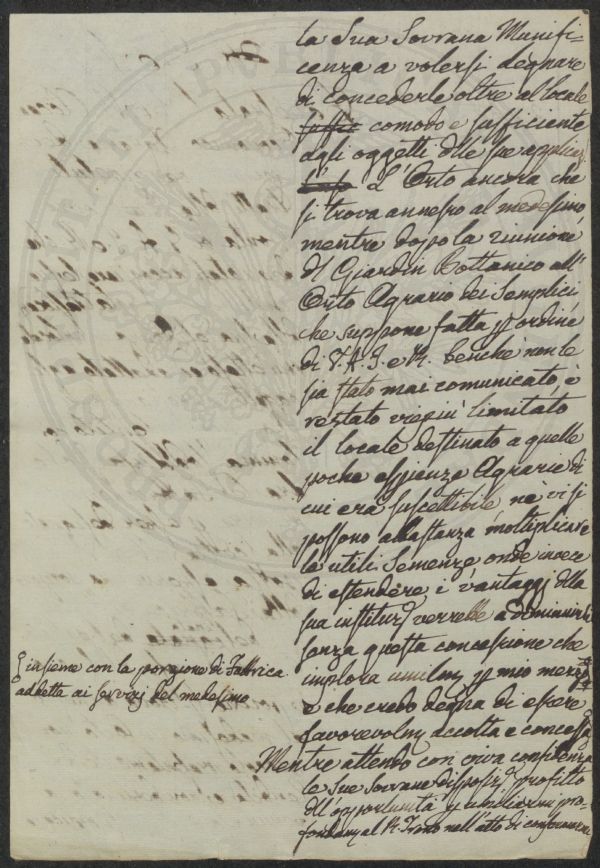 la Sua Sovrana Munifi-
cenza a volersi degnare
di concederle oltre al locale
suffic comodo e sufficiente
agli oggetti dlle sue applicaz
l'Orto ancora che
si trova annesso al medesimo
mentre dopo la riunione
dl Giardin Bottanico all'
Orto Agrario dei Semplici
che suppone fatta p ordine
di V. A. I. e R. benchè non le
sia stato mai comunicato, è
restato viepiù limitato
il locale destinato a quelle
poche espienze Agrarie di
cui era suscettibile, nè vi si
possono abbastanza moltiplicare
le utili Semenze onde invece
di estendere i vantaggj dlla
sua instituz verrebbe a diminuirli
senza questa concessione che
implora umilmy p mio mezzo
e che credo degna di essere
favorevolmy accolta e concessa
insieme con la porzione di Fabbrica
addetta ai servizj del medesimo
Mentre attendo con viva confidenza
le Sue Sovrane disposiz profitto
dll'opportunità p umiliarmi pro-
fondamy al R. Trono nell'atto di